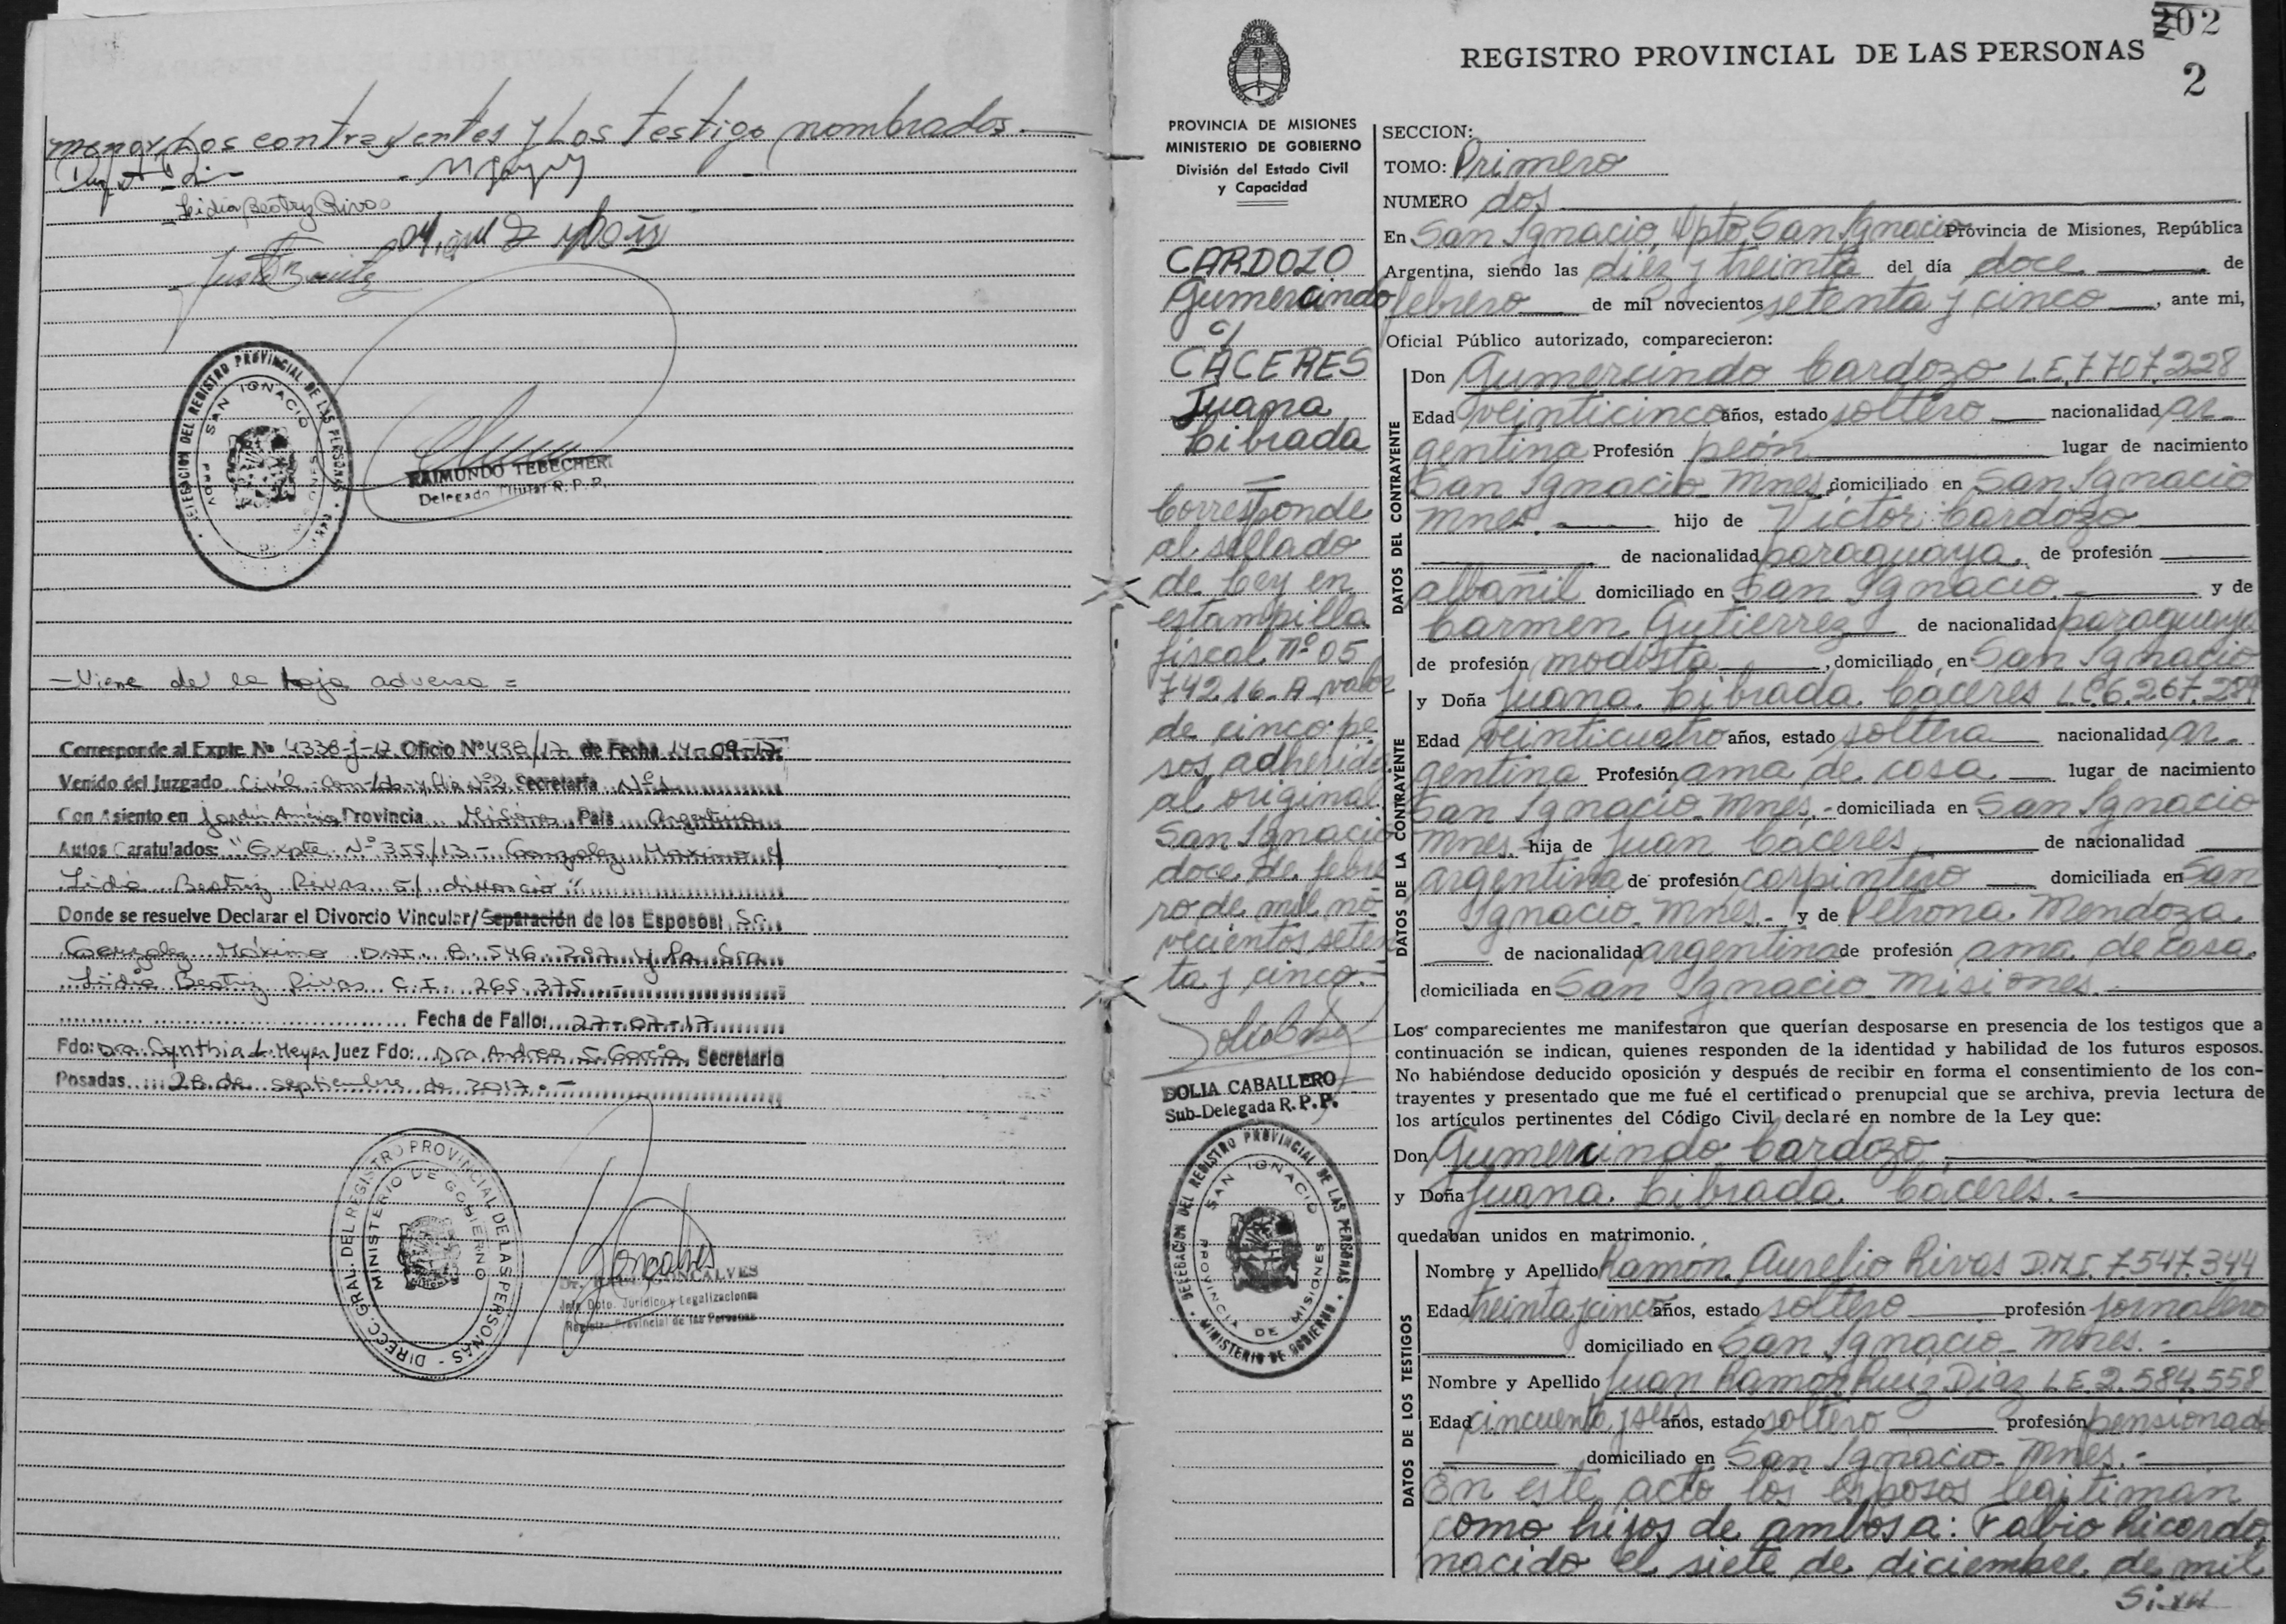 menor, Los contrayentes y Los testigo nombrados.
Lidia Beatriz Rivas
DELEGACION DEL REGISTRO PROVINCIAL DE LAS PERSONAS
SAN IGNACIO
RAIMUNDO TEBECHERI
Delegado Titular R. P. P.
- Viene de la hoja adversa =
Corresponde al Expte. Nº 4338-J-17 Oficio Nº 498/17 de Fecha 14-09-17
Venido del Juzgado Civil Com. Lab. y Flia Nº 2 Secretaría Nº 1
Con Asiento en Jardín América Provincia Misiones País Argentina
Autos Caratulados: "Expte. Nº 355/13 - Gonzalez Maximo c/
Lidia Beatriz Rivas s/ divorcio"
Donde se resuelve Declarar el Divorcio Vincular/Separación de los Esposos: Sr.
Gonzalez Máximo DNI. 8.546.287 y la Sra.
Lidia Beatriz Rivas C.I. 265.375 -
Fecha de Fallo: 27-07-17
Fdo: Dra. Cynthia L. Meyer Juez Fdo: Dra. Andrea S. Garcia Secretario
Posadas 28 de septiembre de 2017. -
DIREC. GRAL. DEL REGISTRO PROVINCIAL DE LAS PERSONAS
MINISTERIO DE GOBIERNO
GONCALVES
Jefe Dpto. Jurídico y Legalizaciones
Registro Provincial de las Personas
202
REGISTRO PROVINCIAL DE LAS PERSONAS
2
PROVINCIA DE MISIONES
MINISTERIO DE GOBIERNO
División del Estado Civil
y Capacidad
CARDOZO
Gumercindo
c/
CÁCERES
Juana
Librada
Corresponde
al sellado
de Ley en
estampilla
fiscal nº 05
74216-A valor
de cinco pe
sos adherida
al original
San Ignacio
doce de febre
ro de mil no
vecientos seten
ta y cinco.-
DOLIA CABALLERO
Sub-Delegada R. P. P.
DELEGACION DEL REGISTRO PROVINCIAL DE LAS PERSONAS
MINISTERIO DE GOBIERNO
SAN IGNACIO
PROVINCIA DE MISIONES
SECCION:
TOMO: Primero
NUMERO dos
En San Ignacio, Dpto. San Ignacio Provincia de Misiones, República
Argentina, siendo las diez y treinta del día doce de
febrero de mil novecientos setenta y cinco, ante mi,
Oficial Público autorizado, comparecieron:
DATOS DEL CONTRAYENTE
Don Gumercindo Cardozo L.E. 7.707.228
Edad veinticinco años, estado soltero nacionalidad ar-
gentina Profesión peón lugar de nacimiento
San Ignacio Mnes. domiciliado en San Ignacio
Mnes. hijo de Victor Cardozo
de nacionalidad paraguaya, de profesión
albañil domiciliado en San Ignacio y de
Carmen Gutierrez de nacionalidad paraguaya
de profesión modista, domiciliado en San Ignacio
DATOS DE LA CONTRAYENTE
y Doña Juana Librada Cáceres L.C. 6.267.289
Edad veinticuatro años, estado soltera nacionalidad ar-
gentina Profesión ama de casa lugar de nacimiento
San Ignacio Mnes.- domiciliada en San Ignacio
Mnes. hija de Juan Cáceres de nacionalidad
argentina de profesión carpintero domiciliada en San
Ignacio Mnes.- y de Petrona Mendoza
de nacionalidad argentina de profesión ama de casa.
domiciliada en San Ignacio Misiones.-
Los comparecientes me manifestaron que querían desposarse en presencia de los testigos que a
continuación se indican, quienes responden de la identidad y habilidad de los futuros esposos.
No habiéndose deducido oposición y después de recibir en forma el consentimiento de los con-
trayentes y presentado que me fué el certificado prenupcial que se archiva, previa lectura de
los artículos pertinentes del Código Civil declaré en nombre de la Ley que:
Don Gumercindo Cardozo
y Doña Juana Librada Cáceres.-
quedaban unidos en matrimonio.
DATOS DE LOS TESTIGOS
Nombre y Apellido Ramón Aurelio Rivas D.N.I. 7.547.344
Edad treinta y cinco años, estado soltero profesión jornalero
domiciliado en San Ignacio Mnes.-
Nombre y Apellido Juan Ramón Ruiz Diaz L.E. 2.584.558
Edad cincuenta y seis años, estado soltero profesión pensionado
domiciliado en San Ignacio Mnes.-
En este acto los esposos legitiman
como hijos de ambos a: Fabio Ricardo,
nacido el siete de diciembre de mil